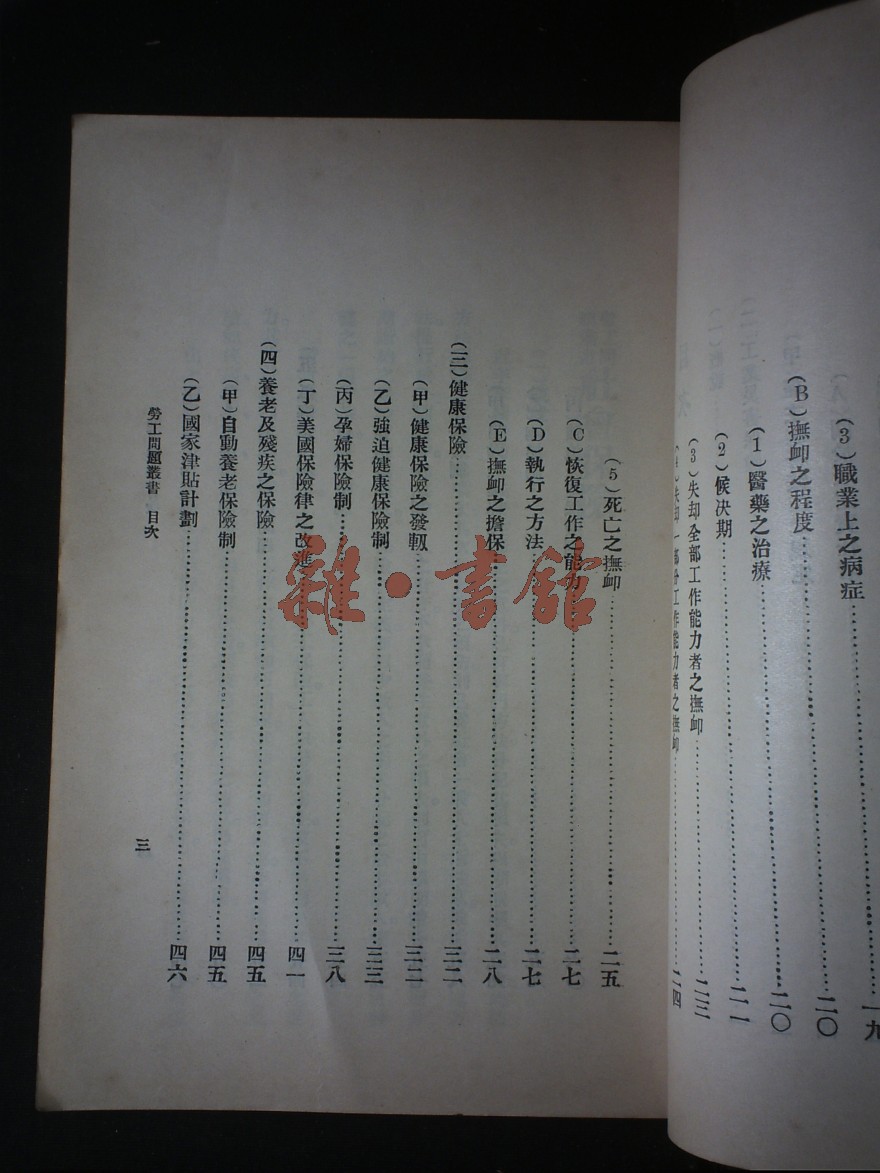 (3)職業上之病症……一九
(B)撫卹之程度……二〇
(1)醫藥之治療……二〇
(2)候決期……二一
(3)失却全部工作能力者之撫卹……二三
(4)失却一部份工作能力者之撫卹……二四
(5)死亡之撫卹……二五
(C)恢復工作之能力……二七
(D)執行之方法……二七
(E)撫卹之擔保……二八
(三)健康保險……三二
(甲)健康保險之發軔……三二
(乙)強迫健康保險制……三三
(丙)孕婦保險制……三八
(丁)美國保險律之改進……四一
(四)養老及殘疾之保險……四五
(甲)自動養老保險制……四五
(乙)國家津貼計劃……四六
勞工問題叢書 目次
三
雜·書館